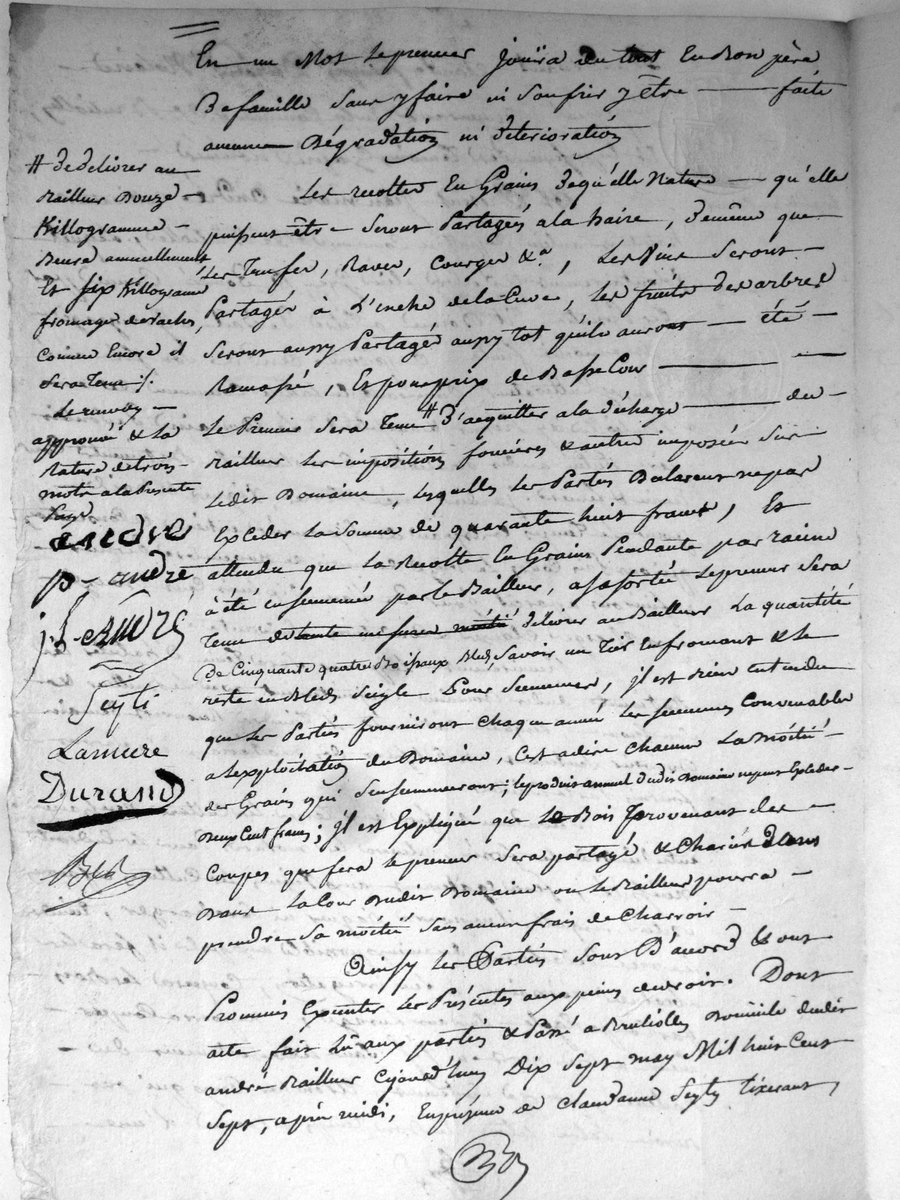 En un Mot le preneur Joüira du tout En Bon père
De famille sans y faire ni Soufrir y être ——— faite
aucune Dégradation ni déterioration
Les recoltes En Grains De qu'elle Nature — qu'elle
puissent être Seront Partagés a la haire, de même que
Les Trufes, Raves, Courges &a, Les Vins Seront
Partagés à L'enche de la Cuve, Les fruits des arbres
Seront aussy Partagés aussy tot qu'ils auront — été
Ramassé, Et pour prix de Basse Cour ———
Le Preneur Sera Tenu # D'acquitter a la décharge ——— du
Bailleur Les impositions foncières & autres imposées Sur
Ledit Domaine, lesquelles Les Partés Déclarent ne pas
Excéder La Somme de quarante huit francs, Et
attendu que La Recolte En Grains Pendante par racine
à été ensemencée par le Bailleur, a sa sortée Le preneur Sera
Tenu de délivrer au Bailleur La quantité
De Cinquante quatre Boisseaux Bled, Savoir un Tier En froment & le
reste en Bled Seigle Pour Semence, Jl est bien entendu
que Les Partés fourniront Chaque année Les Semences Convenables
a L'exploitation du Domaine, C'est a dire Chacune La moitié
des Grains qui S'ensemenceront; le produit annuel dudit Domaine ne peut Excéder
Deux Cent francs; Jl est Expliqué que Le Bois Provenant des
Coupes que fera Le preneur Sera partagé & Charié Dans
Dans La Cour Dudit Domaine ou Le Bailleur pourra
prendre Sa moitié Sans aucun frais de Charroir —
Ainsy Les Partés Sont D'accord & ont
Promis Executer Les Présentes aux peines de droit. Dont
acte fait Lû aux partés & Passé a Brulioles Domicile dudit
andré Bailleur Cejourd'huy Dix Sept may Mil huit Cent
Sept, après midi, En présence de Claude Seyty tixerant
# De délivrer au
Bailleur Douze
Killogramme
Beure annuellement
Et Six Killogramme
fromage de vaches,
Comme Encore il
Sera Tenu ./.
Le renvoy —
approuvé & la
Rature de trois
mots a la Présente
Page
andré
p. andré
Seyti
Lamure
Durand